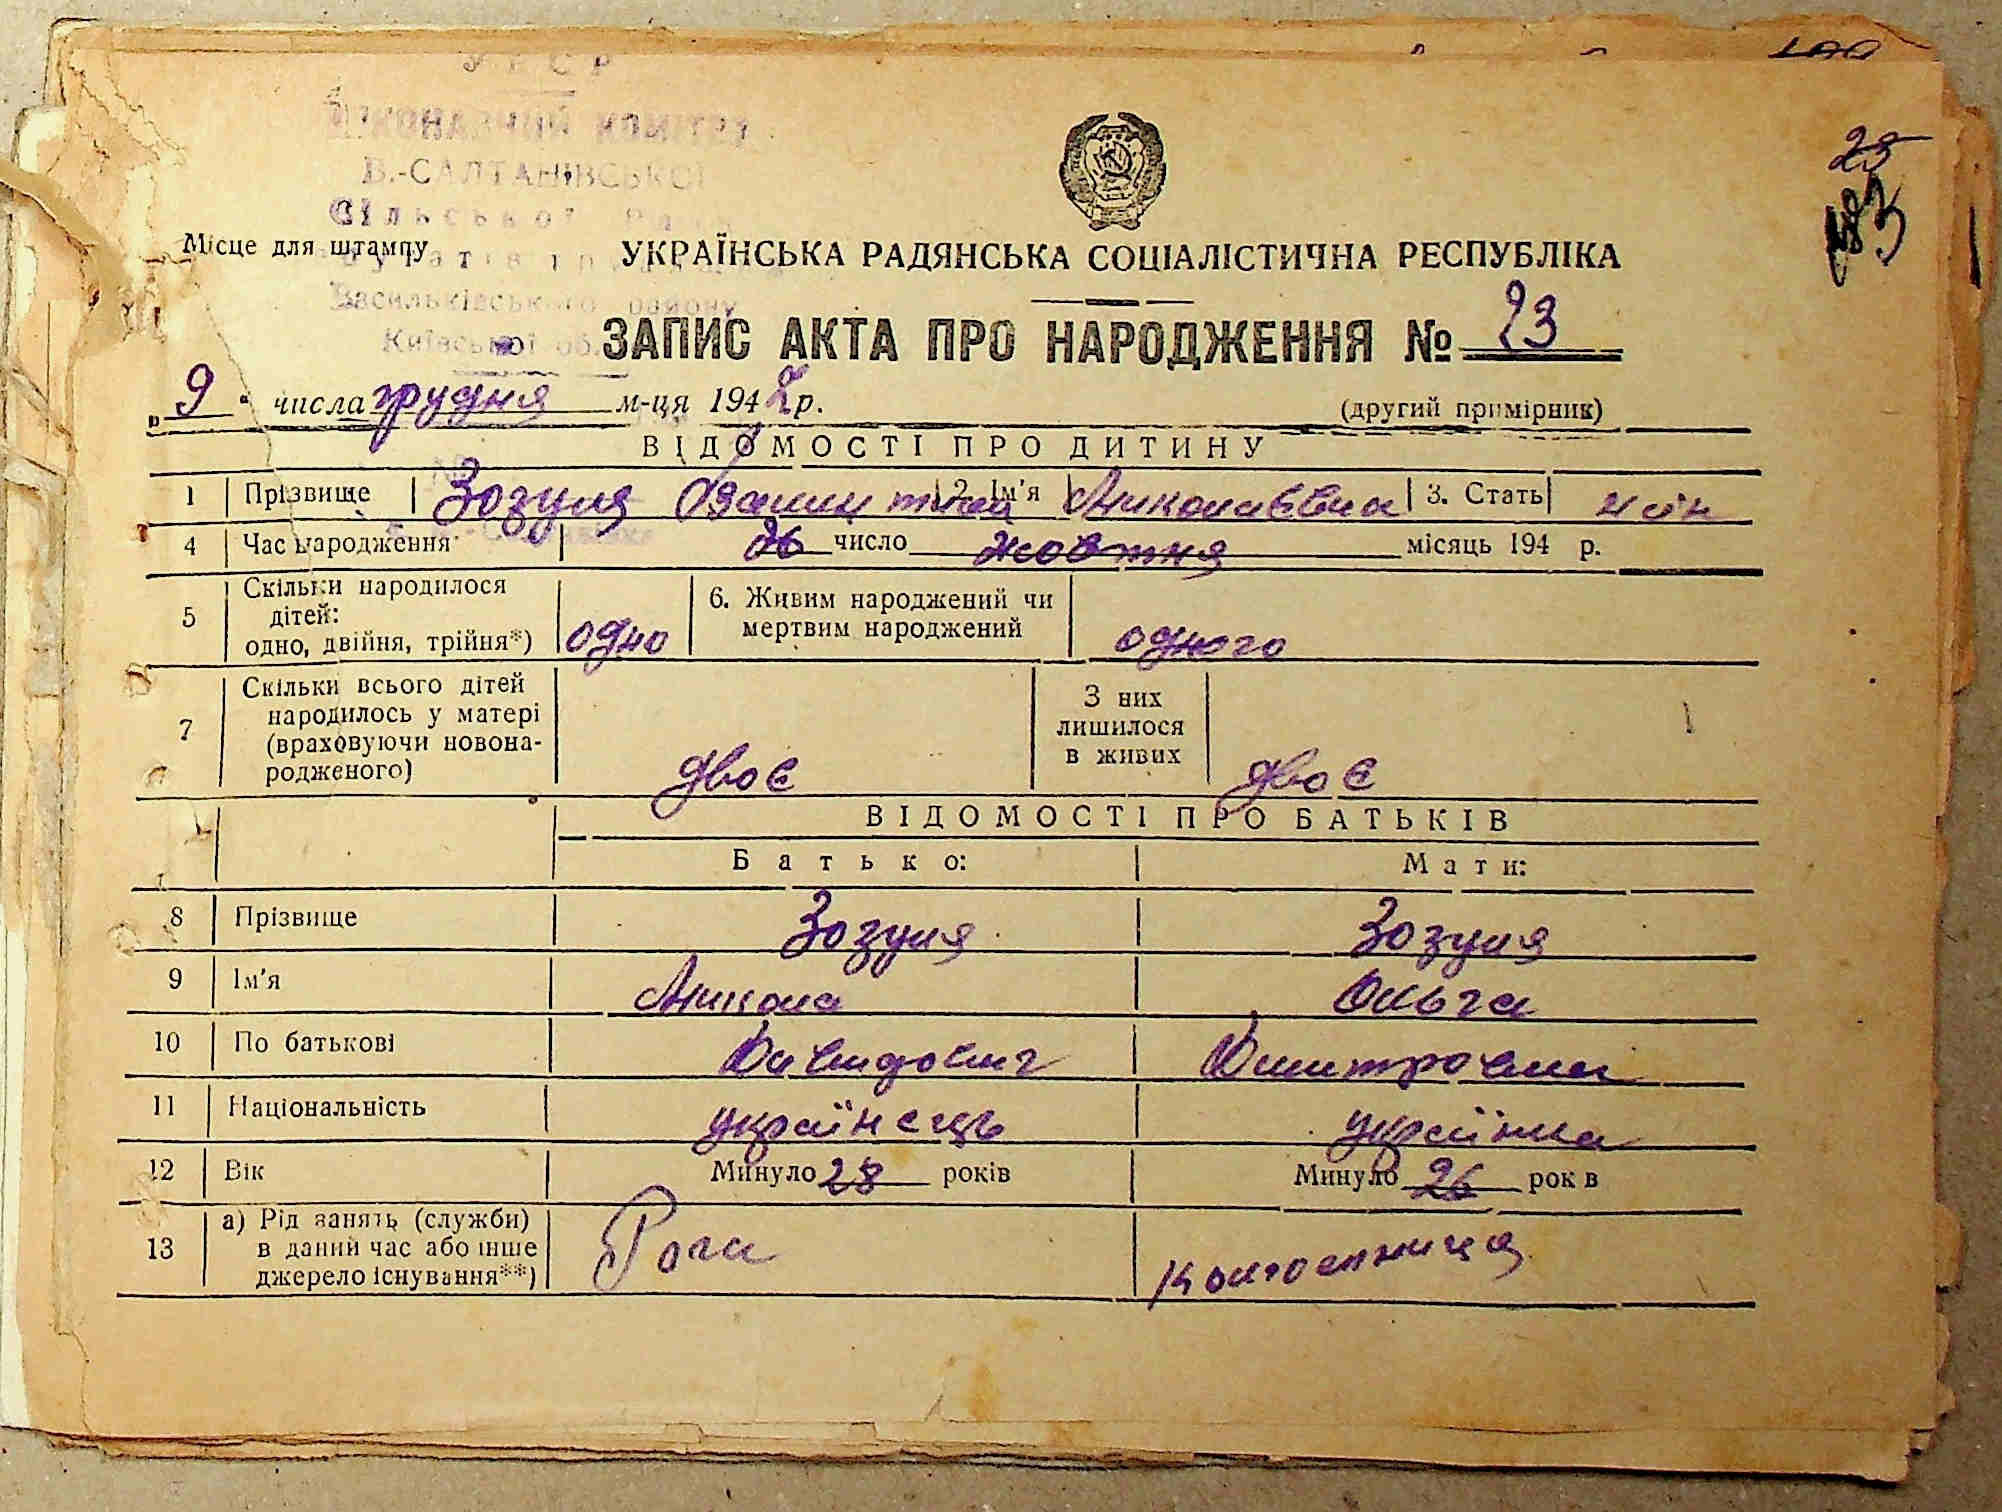 УРСР
ВИКОНАВЧИЙ КОМІТЕТ
В.-САЛТАНІВСЬКОЇ
Сільської Ради
Васильківського району
Київської об.
25
83
Місце для штампу
УКРАЇНСЬКА РАДЯНСЬКА СОЦІАЛІСТИЧНА РЕСПУБЛІКА
ЗАПИС АКТА ПРО НАРОДЖЕННЯ № 23
„ 9 “ числа грудня м-ця 194 р.
(другий примірник)
ВІДОМОСТІ ПРО ДИТИНУ
1 Прізвище Зозуля 2. Ім'я Миколаєвна 3. Стать жін
4 Час народження 26 число жовтня місяць 194 р.
5 Скільки народилося дітей: одно, двійня, трійня*) одно 6. Живим народжений чи мертвим народжений одного
7 Скільки всього дітей народилось у матері (враховуючи новонародженого) двоє З них лишилося в живих двоє
ВІДОМОСТІ ПРО БАТЬКІВ
Батько: Мати:
8 Прізвище Зозуля Зозуля
9 Ім'я Микола Ольга
10 По батькові Давидович Дмитровна
11 Національність українець українка
12 Вік Минуло 28 років Минуло 26 рок в
13 а) Рід занять (служби) в даний час або інше джерело існування**) колгоспниця